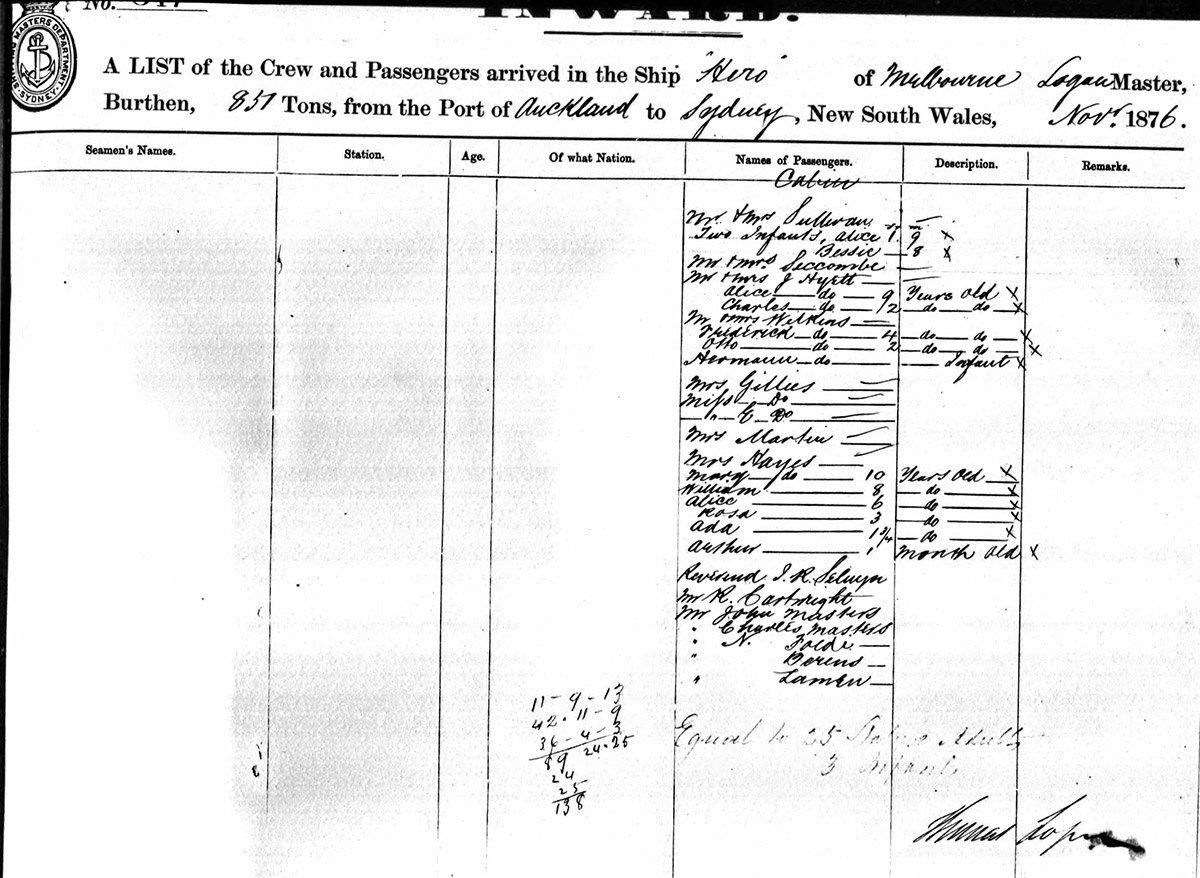 No.
INWARD.
SHIPPING MASTERS DEPARTMENT SYDNEY
A LIST of the Crew and Passengers arrived in the Ship "Hero" of Melbourne Logan Master,
Burthen, 851 Tons, from the Port of Auckland to Sydney, New South Wales, Novr. 1876.
Seamen's Names. Station. Age. Of what Nation. Names of Passengers. Description. Remarks.
Cabin
Mr. & Mrs Sullivan —
Two Infants, Alice 1 9 x
Bessie — 8 x
Mr & Mrs. Seccombe —
Mr & Mrs J Hyett —
Alice — do — 9 Years Old x
Charles — do — 1/2 — do — do — x
Mr & Mrs Wilkins —
Frederick — do — 4 — do — do — x
Otto — do — 2 — do — do — x
Hermann — do — Infant x
Mrs Gillies —
Miss — Do —
— " — E — Do —
Mrs Martin —
Mrs Hayes —
Mary — do — 10 Years Old — x
William — 8 — do — x
Alice — 6 — do — x
Rosa — 3 — do — x
Ada — 1 3/4 — do — x
Arthur — 1 month old x
Reverend J. R. Selwyn
Mr R. Cartwright
Mr John Masters
" Charles Masters
" N.
"
"
11 - 9 - 13
42 - 11 - 9
36 - 4 - 3
89 24 - 25
24
25
138
Equal to 25 Statute Adults
3 Infants
Thomas Logan